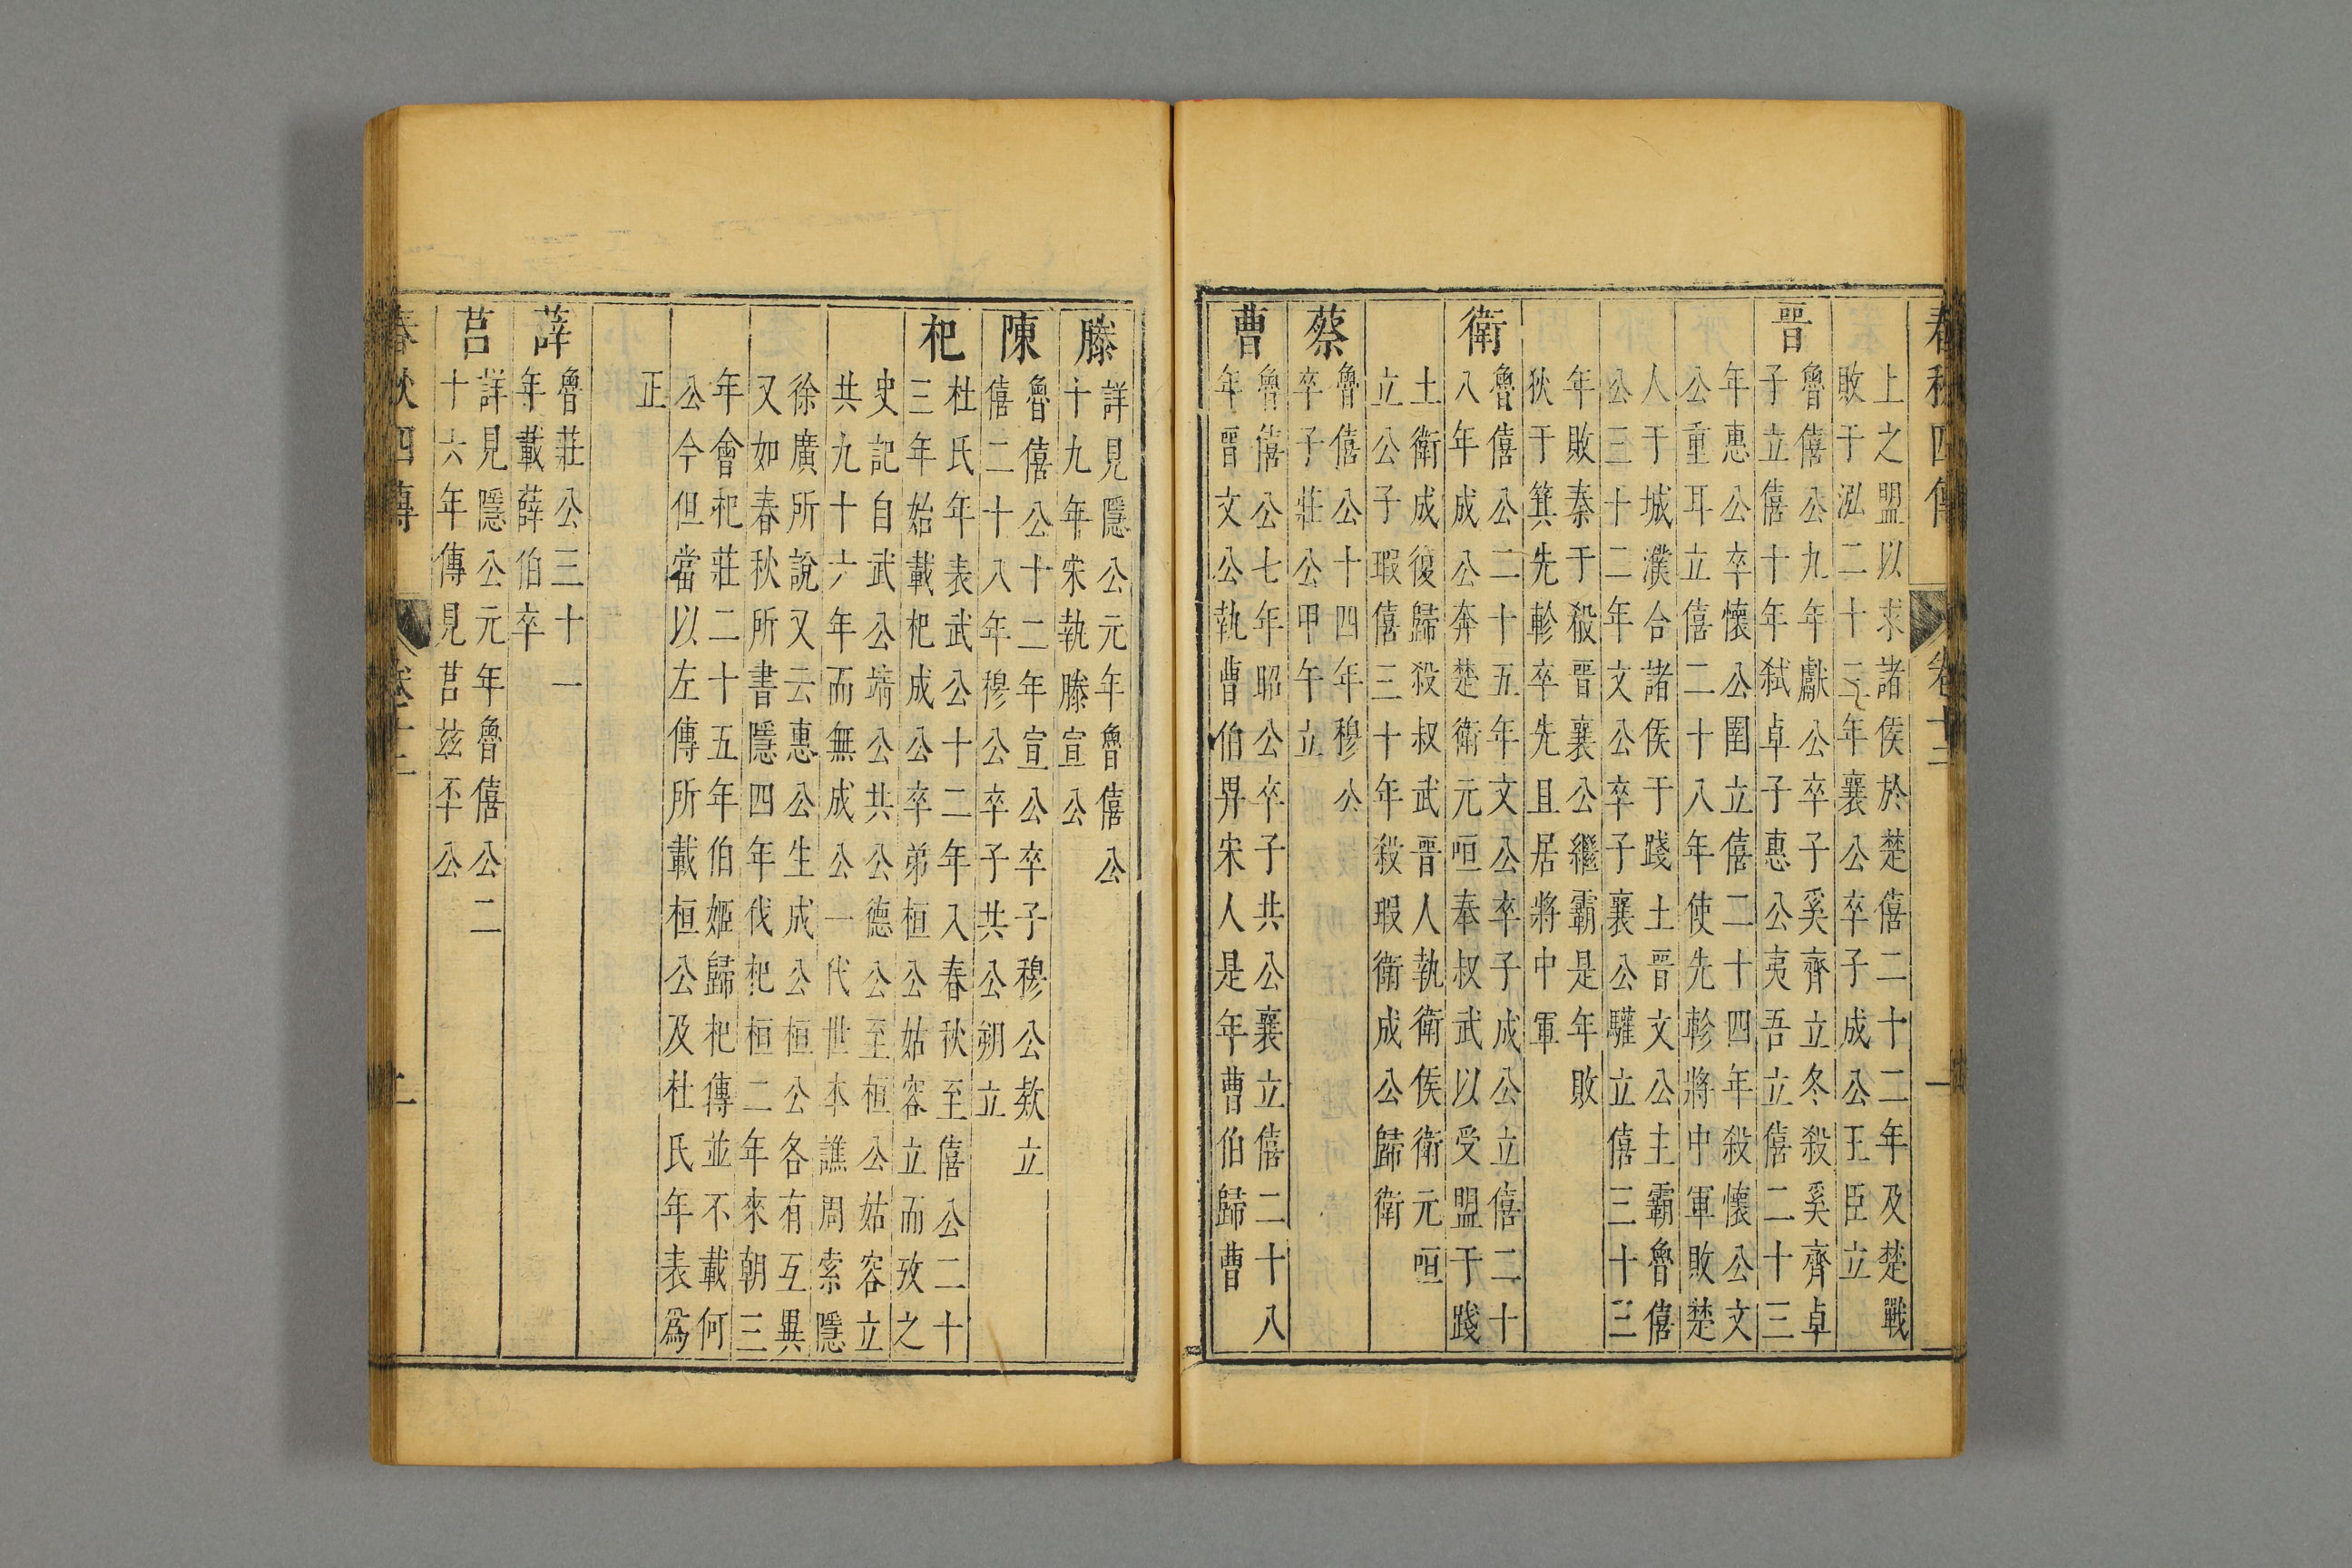 春秋四傳 卷十二 一
上之盟以求諸侯於楚僖二十二年及楚戰
敗于泓二十三年襄公卒子成公王臣立
晉
魯僖公九年獻公卒子奚齊立冬殺奚齊卓
子立僖十年弑卓子惠公夷吾立僖二十三
年惠公卒懷公圉立僖二十四年殺懷公文
公重耳立僖二十八年使先軫將中軍敗楚
人于城濮合諸侯于踐土晉文公主霸魯僖
公三十二年文公卒子襄公驩立僖三十三
年敗秦于殽晉襄公繼霸是年敗
狄于箕先軫卒先且居將中軍
衛
魯僖公二十五年文公卒子成公立僖二十
八年成公奔楚衛元咺奉叔武以受盟于踐
土衛成復歸殺叔武晉人執衛侯衛元咺
立公子瑕僖三十年殺瑕衛成公歸衛
蔡
魯僖公十四年穆公
卒子莊公甲午立
曹
魯僖公七年昭公卒子共公襄立僖二十八
年晉文公執曹伯畀宋人是年曹伯歸曹
滕
詳見隱公元年魯僖公
十九年宋執滕宣公
陳
魯僖公十二年宣公卒子穆公欵立
僖二十八年穆公卒子共公朔立
杞
杜氏年表武公十二年入春秋至僖公二十
三年始載杞成公卒弟桓公姑容立而攷之
史記自武公靖公共公德公至桓公姑容立
共九十六年而無成公一代世本譙周索隱
徐廣所說又云惠公生成公桓公各有互異
又如春秋所書隱四年伐杞桓二年來朝三
年會杞莊二十五年伯姬歸杞傳並不載何
公今但當以左傳所載桓公及杜氏年表爲
正
薛
魯莊公三十一
年載薛伯卒
莒
詳見隱公元年魯僖公二
十六年傳見莒兹㔻公
春秋四傳 卷十二 二